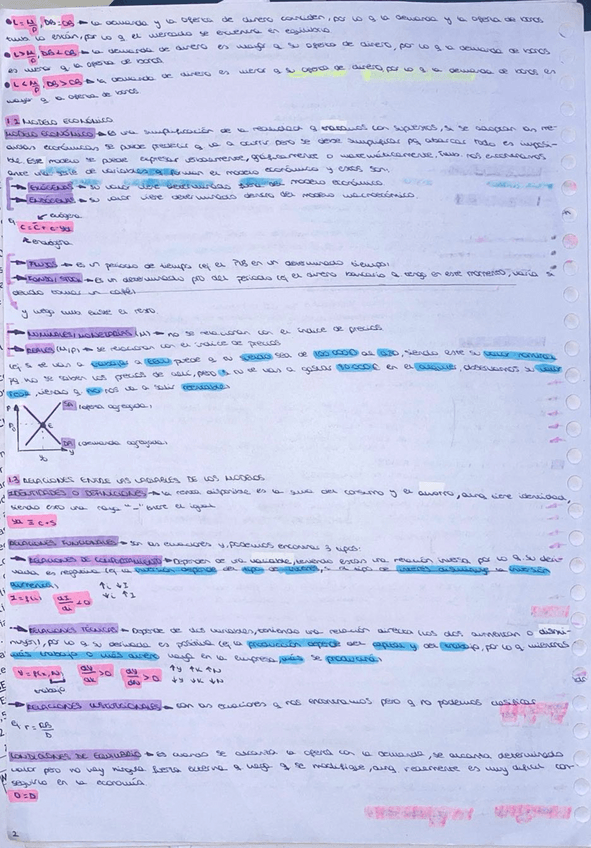 • L = M/P, DB = OB → la demanda y la oferta de dinero coinciden, por lo q la demanda y la oferta de bonos
tmb lo están, por lo q el mercado se encuentra en equilibrio
• L > M/P, DB < OB → la demanda de dinero es mayor q su oferta de dinero, por lo q la demanda de bonos
es menor q la oferta de bonos
• L < M/P, DB > OB → la demanda de dinero es menor q su oferta de dinero, por lo q la demanda de bonos es
mayor q la oferta de bonos
1.2 MODELO ECONÓMICO
MODELO ECONÓMICO → Es una simplificación de la realidad q creamos con supuestos, si se adoptan las me-
didas económicas se puede predecir q va a ocurrir pero se debe simplificar pq abarcar todo es imposi-
ble. Este modelo se puede expresar verbalmente, gráficamente o matemáticamente, tmb nos encontramos
ante una serie de variables q forman el modelo económico y esas son:
→ EXÓGENAS → su valor viene determinado fuera del modelo económico
→ ENDÓGENAS → su valor viene determinado dentro del modelo macroeconómico
Ej. exógena
C = C + c Yd
endógena
→ FLUJO → Es un periodo de tiempo (ej. el PIB en un determinado tiempo)
→ FONDO/STOCK → Es un determinado pto del periodo (ej. el dinero bancario q tengo en este momento, varía si
decido tomar un café)
y luego tmb existe el resto.
→ NOMINALES/MONETARIAS (M) → no se relacionan con el índice de precios
→ REALES (M/P) → se relacionan con el índice de precios
(ej. si te vas a trabajar a puede q tu sueldo sea de 100 000€ al año, siendo este su valor nominal
pq no se saben los precios de allí, pero si te vas a gastar 90 000€ en el alquiler, obtenemos su valor
real, viendo q no nos va a salir rentable)
P
P₀
SA (oferta agregada)
E
DA (demanda agregada)
Y₀ Y
1.3 RELACIONES ENTRE LAS VARIABLES DE LOS MODELOS
IDENTIDADES O DEFINICIONES → la renta disponible es la suma del consumo y el ahorro, aunq tiene identidad,
siendo esto una raya "_" entre el igual
Yd ≡ C + S
RELACIONES FUNCIONALES → son las ecuaciones y podemos encontrar 3 tipos:
→ RELACIONES DE COMPORTAMIENTO → Depende de una variable, teniendo estas una relación inversa por lo q su deri-
vada es negativa (ej. la inversión depende del tipo de interés, si el tipo de interés disminuye la inversión
aumenta)
I = f(i) dI/di < 0 ↑i ↓I ↓i ↑I
→ RELACIONES TÉCNICAS → Depende de dos variables, teniendo una relación directa (las dos aumentan o dismi-
nuyen), por lo q su derivada es positiva (ej. la producción depende del capital y del trabajo, por lo q mientras
más trabajo o más dinero haya en la empresa, más se producirá)
Y = f(K, N) dY/dK > 0 dY/dN > 0 ↑Y ↑K ↑N
trabajo ↓Y ↓K ↓N
→ RELACIONES INSTITUCIONALES → son las ecuaciones q nos encontramos pero q no podemos clasificar
Ej. r = RB/D
CONDICIONES DE EQUILIBRIO → Es cuando se encuentra la oferta con la demanda, se alcanza determinado
valor pero no hay ninguna fuerza externa q haga q se modifique, aunq realmente es muy difícil con-
seguirlo en la economía
O = D
2